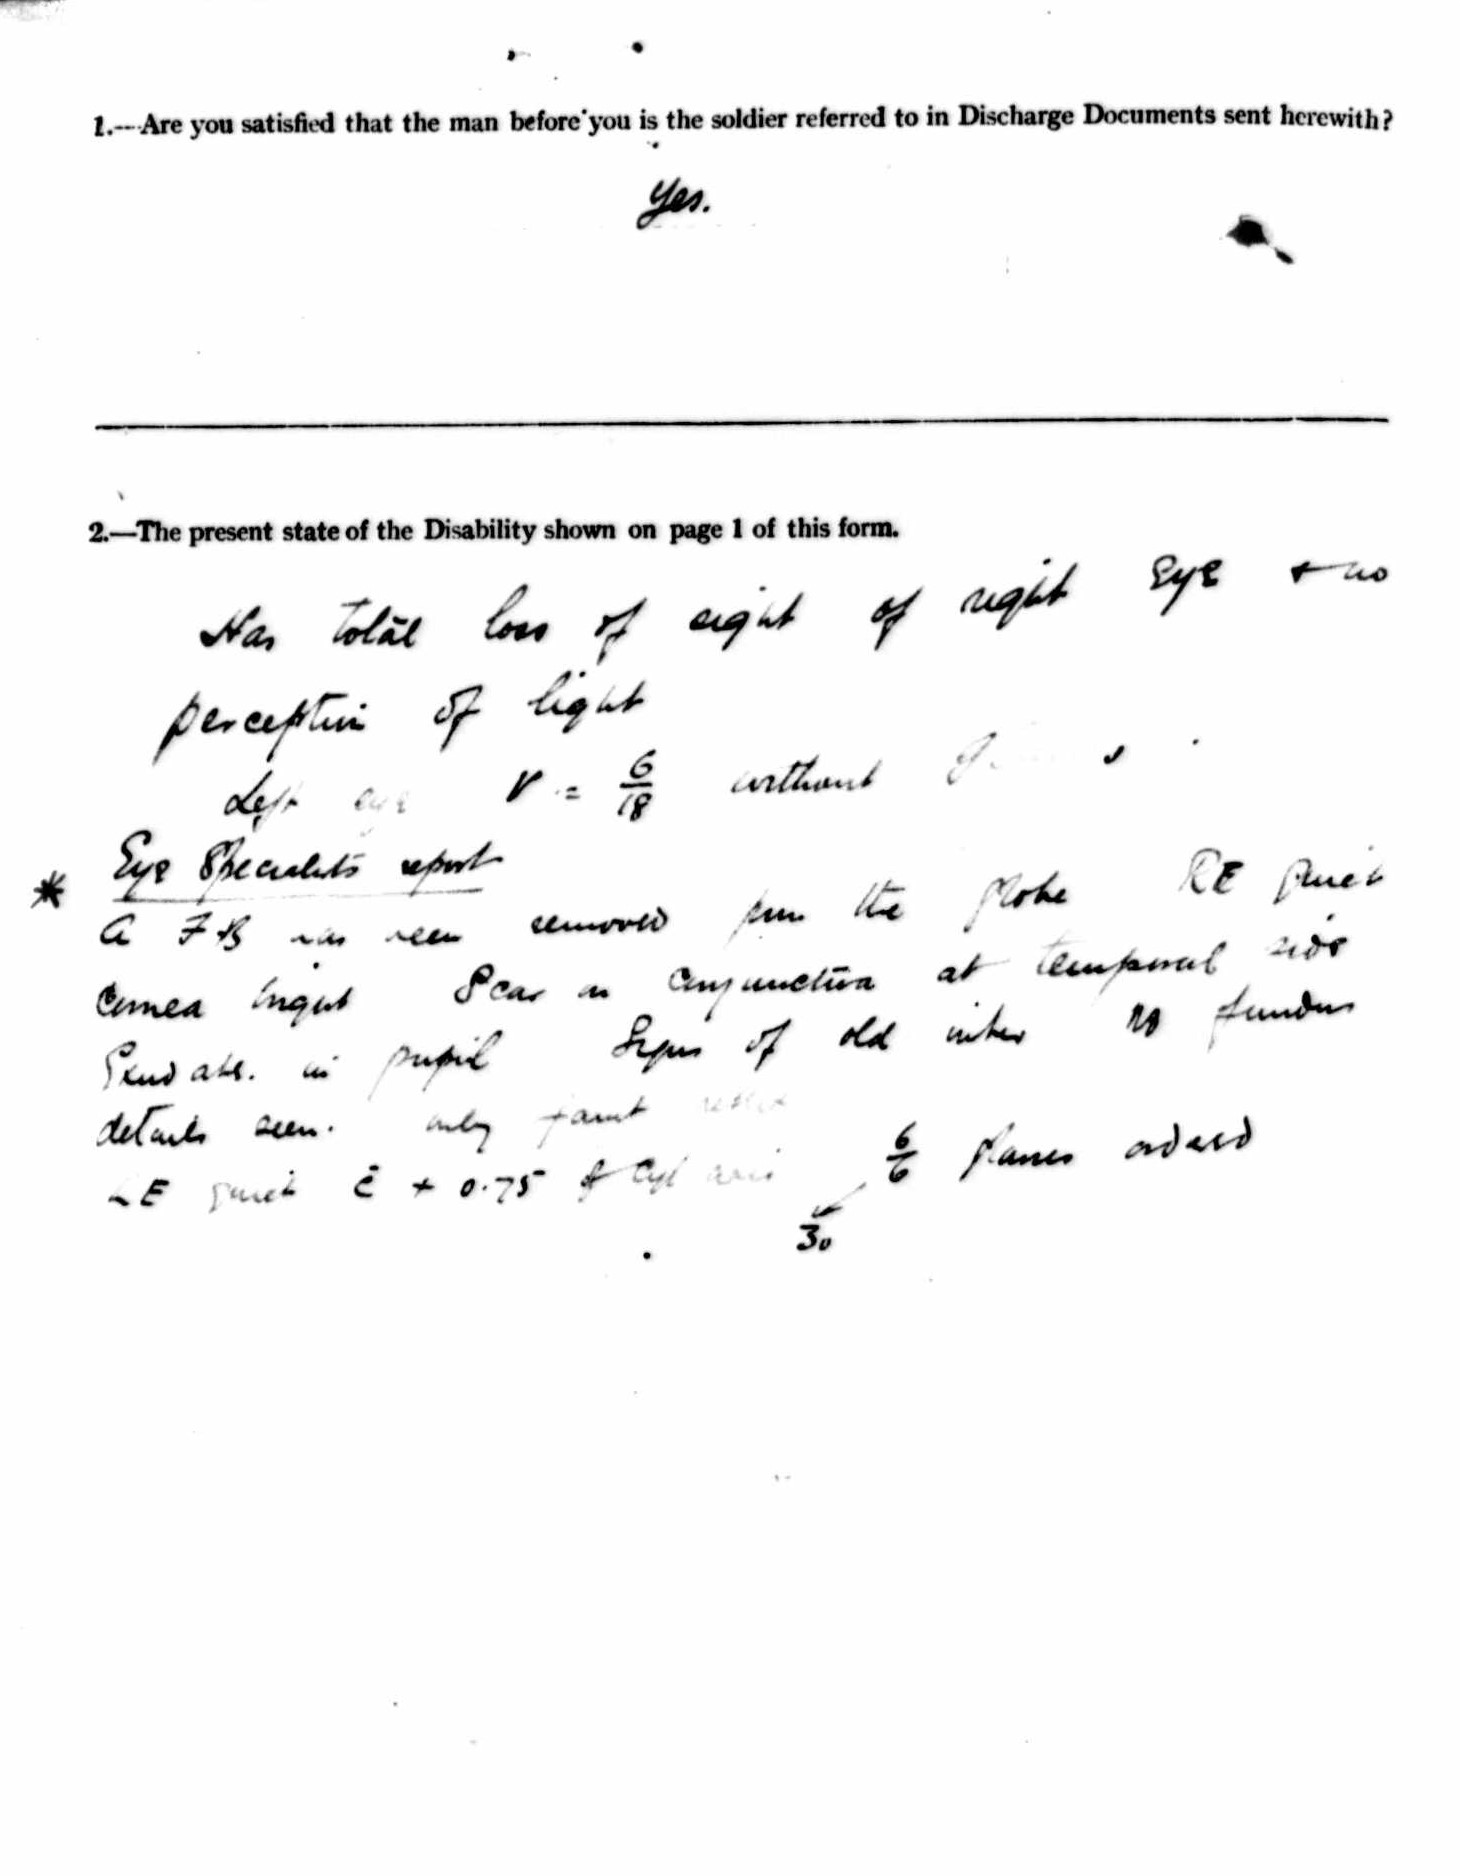 1.—Are you satisfied that the man before you is the soldier referred to in Discharge Documents sent herewith?
Yes.
2.—The present state of the Disability shown on page 1 of this form.
Has total loss of sight of right Eye + no
perception of light
Left eye V = 6/18 without
* Eye Specialists report
A FB has been removed from the globe RE quiet
Cornea bright Scar on Conjunctiva at temporal side
Exudate. in pupil Signs of old iritis No fundus
details seen. only faint reflex
LE quiet c̄ + 0.75 Cyl axis 6/6 glasses ordered
30